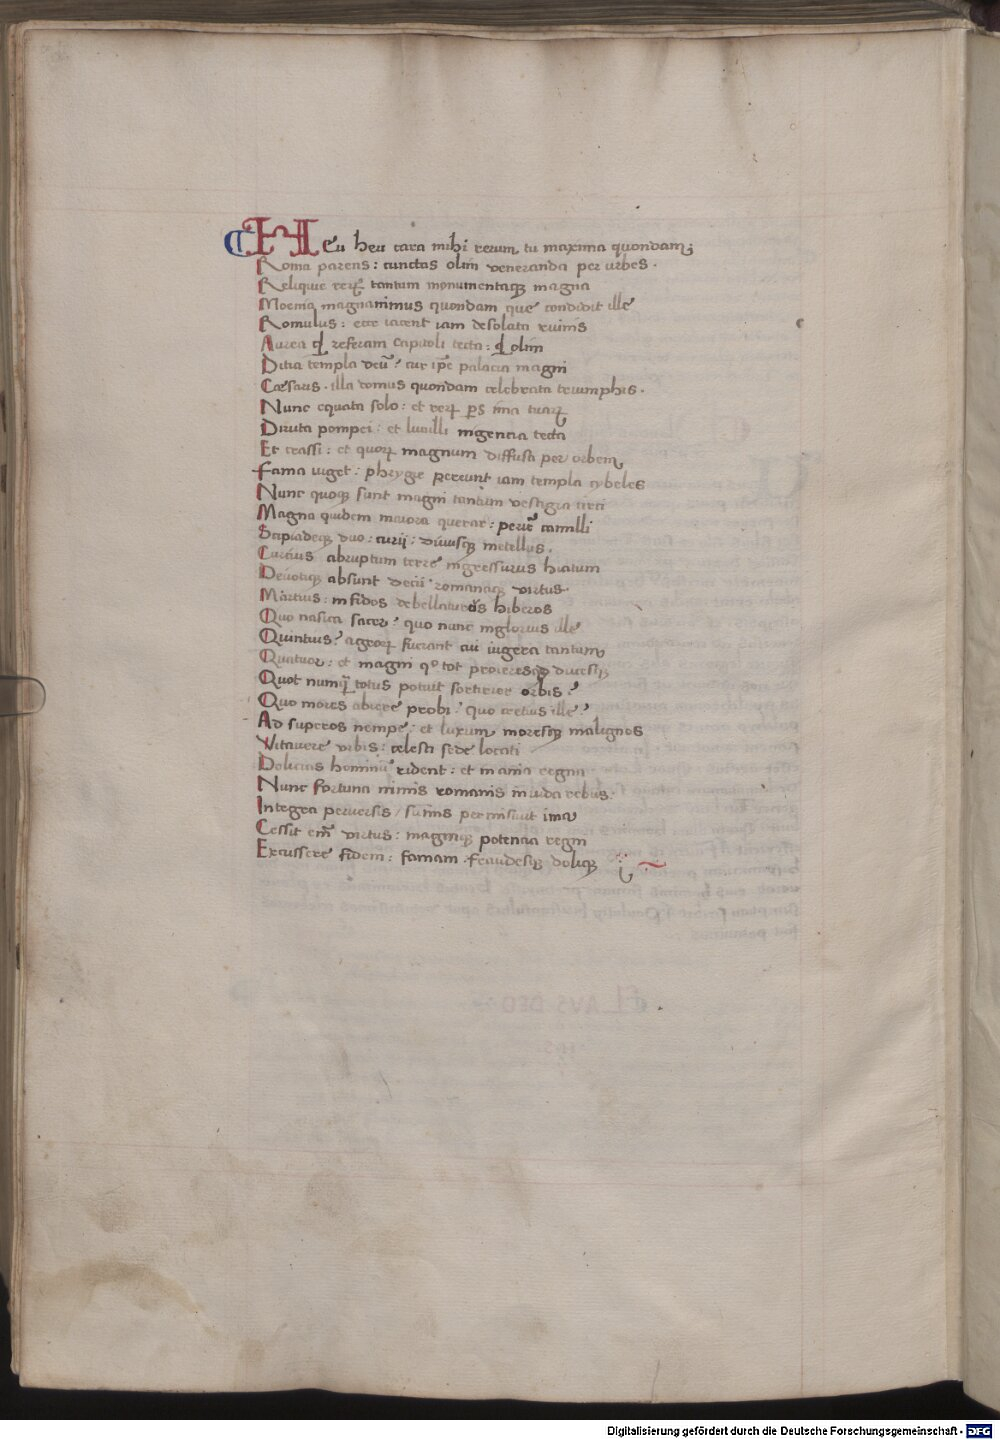 Heu heu cara mihi rerum tu maxima quondam;
Roma parens: cunctas olim veneranda per urbes.
Reliquie rerꝝ tantum monumentaqꝫ magna
Moenia magnanimus quondam que condidit ille
Romulus: ecce iacent iam desolata ruinis
Aurea qd referam capitoli tecta: qd olim
Ditia templa deū? cur ip̄e palacia magni
Cæsaris. illa domus quondam celebrata triumphis.
Nunc equata solo: et rerꝝ ps ima tuarꝝ
Diruta pompei: et luculli ingencia tecta
Et crassi: et quorꝝ magnum diffusa per orbem
Fama viget: phrygie pereunt iam templa cybeles
Nunc quoqꝫ sunt magni tantum vestigia circi
Magna quidem maiora querar: perier̄ camilli
Scipiadeqꝫ duo: curii: divusqꝫ metellus.
Curcius abruptum terre ingressurus hiatum
Devotiqꝫ absunt decii romanaqꝫ virtus.
Martius: infidos debellaturos hiberos
Quo nasica sacer? quo nunc inglorius ille
Quintius? agrorꝝ fuerant cui iugera tantum
Quatuor: et magni qo tot proceresqꝫ ducesqꝫ
Quot numqꝫ totus potuit sortirier orbis?
Quo mores abiere probi? quo cetus ille?
Ad superos nempe: et luxum moresqꝫ malignos
Vitavere urbis: celesti sede locati
Delicias hominū rident: et inania regna
Nunc fortuna nimis romanis invida rebus:
Integra perversis / sumis permiscuit ima
Cessit em̄ virtus: magniqꝫ potencia regni
Excussere fidem: famam: fraudesqꝫ doliqꝫ
Digitalisierung gefördert durch die Deutsche Forschungsgemeinschaft - DFG